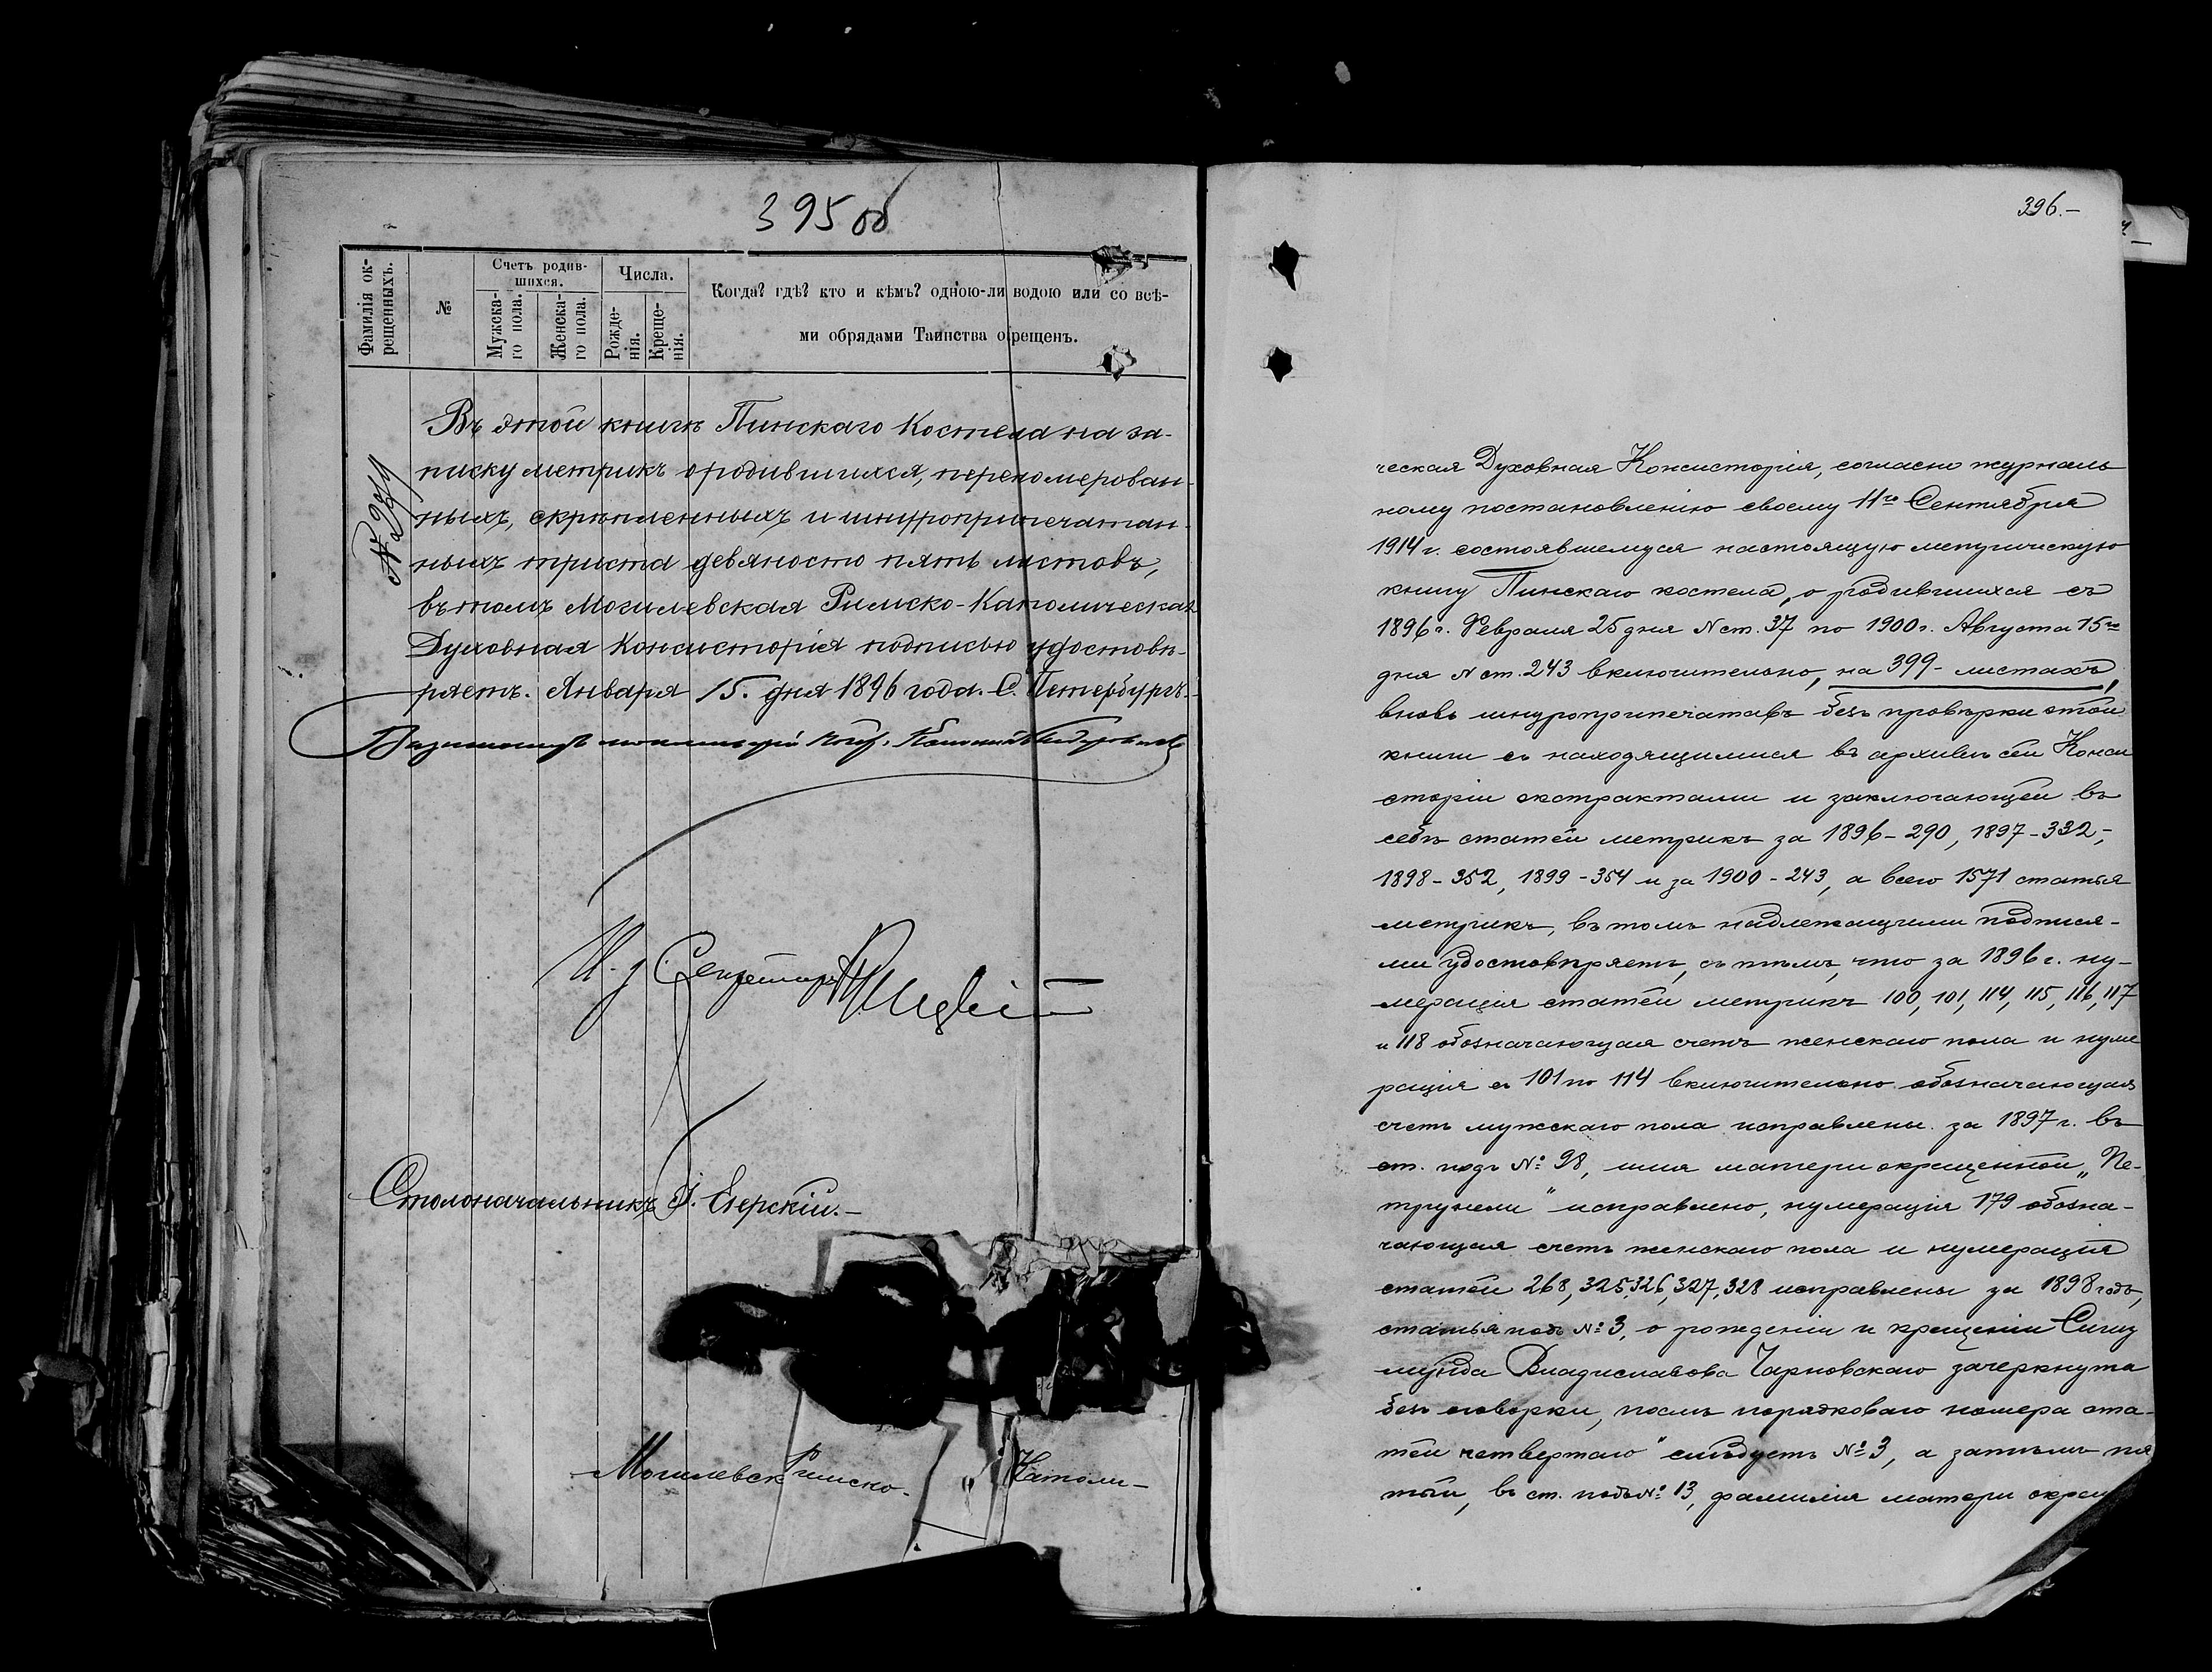 395 об
Фамилія ок-
рещенныхъ.
№
Счетъ родив-
шихся.
Мужска-
го пола.
Женска-
го пола.
Числа.
Рожде-
нія.
Креще-
нія.
Когда? гдѣ? кто и кѣмъ? одною-ли водою или со всѣ-
ми обрядами Таинства окрещенъ.
Въ этой книгѣ Пинскаго Костела на за-
писку метрикъ о родившихся, перекомерован-
ныхъ, скрѣпленныхъ и шнуроприпечатан-
ныхъ триста девяносто пять листовъ,
въ томъ Могилевская Римско-Католическая
Духовная Консисторія подписью удостовѣ-
ряетъ. Января 15. дня 1896 года. С. Петербургъ.
И. д. Секретаря
Столоначальникъ І. Езерскій.-
Могилевск Римско-
Католи-
396.-
ческая Духовная Консисторія, согласно журналь
ному постановленію своему 11го Сентября
1914 г. состоявшемуся настоящую метрическую
книгу Пинскаго костела, о родившихся съ
1896 г. Февраля 25 дня N ст. 37 по 1900 г. Августа 15го
дня N ст. 243 включительно, на 399- листахъ,
вновь шнуроприпечатавъ безъ провѣрки этой
книги съ находящимися въ архивѣ сей Конси
сторіи экстрактами и заключающей въ
себѣ статей метрикъ за 1896-290, 1897-332,-
1898-352, 1899-354 и за 1900-243, а всего 1571 статья
метрикъ, въ томъ надлежащими подпися-
ми удостовѣряетъ, съ тѣмъ, что за 1896 г. ну-
мерація статей метрикъ 100, 101, 114, 115, 116, 117
и 118 обозначающая счетъ женскаго пола и нуме
рація съ 101 по 114 включительно обозначающая
счетъ мужскаго пола исправлены. за 1897 г. въ
ст. подъ №: 98, имя матери окрещенной „Пе-
трунели" исправлено, нумерація 179 обозна-
чающая счетъ женскаго пола и нумерація
статей 268, 325, 326, 327, 328 исправлены за 1898 годъ,
статья подъ №: 3, о рожденіи и крещеніи Сигиз
мунда Владиславова Чарновскаго зачеркнута
безъ оговорки, послѣ порядковаго номера ста-
тей четвертаго" слѣдуетъ №: 3, а затѣмъ пя
тый, въ ст. подъ №: 13, фамилія матери окрещ